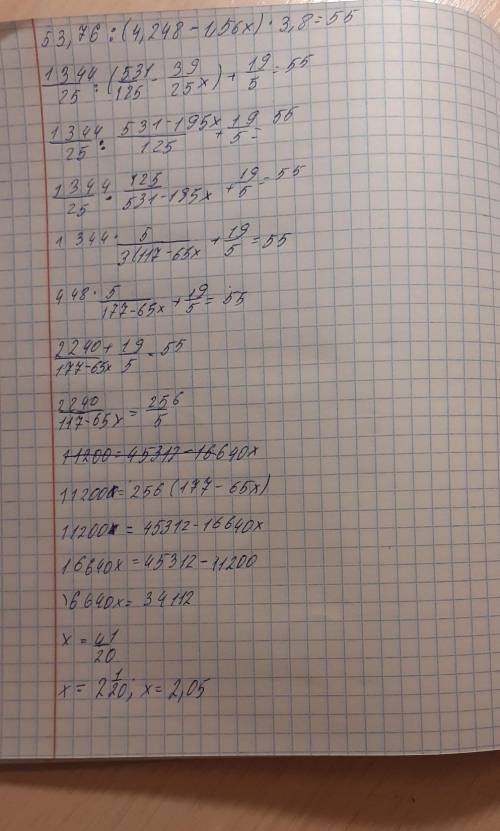 53,76 : (4,248 - 1,56x) · 3,8 = 55
1344/25 : (531/125 - 39/25x) + 19/5 = 55
1344/25 : 531-195x/125 + 19/5 = 55
1344/25 · 125/531-195x + 19/5 = 55
1344 · 5/3(117-65x + 19/5 = 55
448 · 5/177-65x + 19/5 = 55
2240/177-65x + 19/5 = 55
2240/117-65x = 256/5
11200 = 45312 - 16640x
11200x = 256 (177 - 65x)
11200x = 45312 - 16640x
16640x = 45312 - 11200
16640x = 34112
x = 41/20
x = 2 1/20; x = 2,05